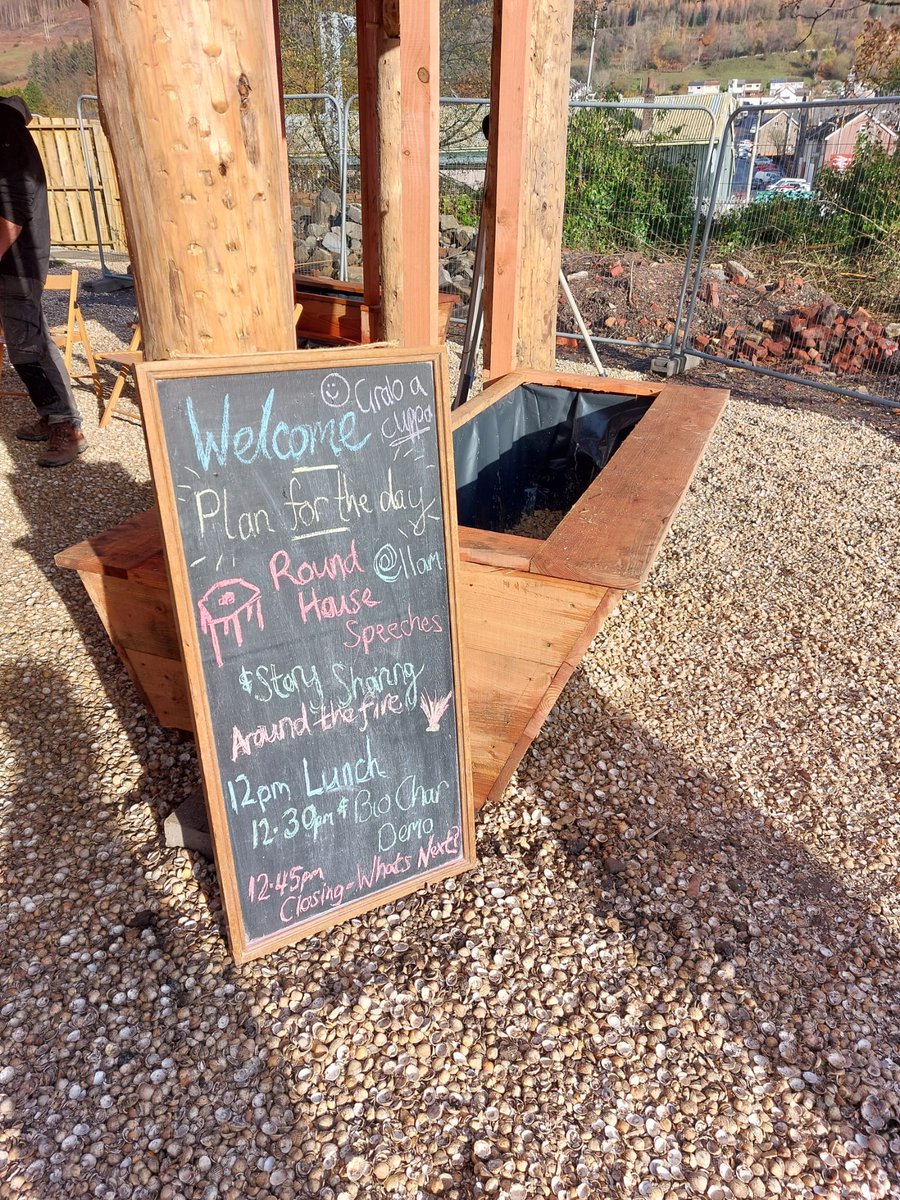 Welcome
☺ Grab a
cuppa
Plan for the day
Round @11am
House
Speeches
& Story Sharing
Around the fire
12pm Lunch
12.30pm & Bio Char
Demo
12.45pm
Closing - Whats Next?